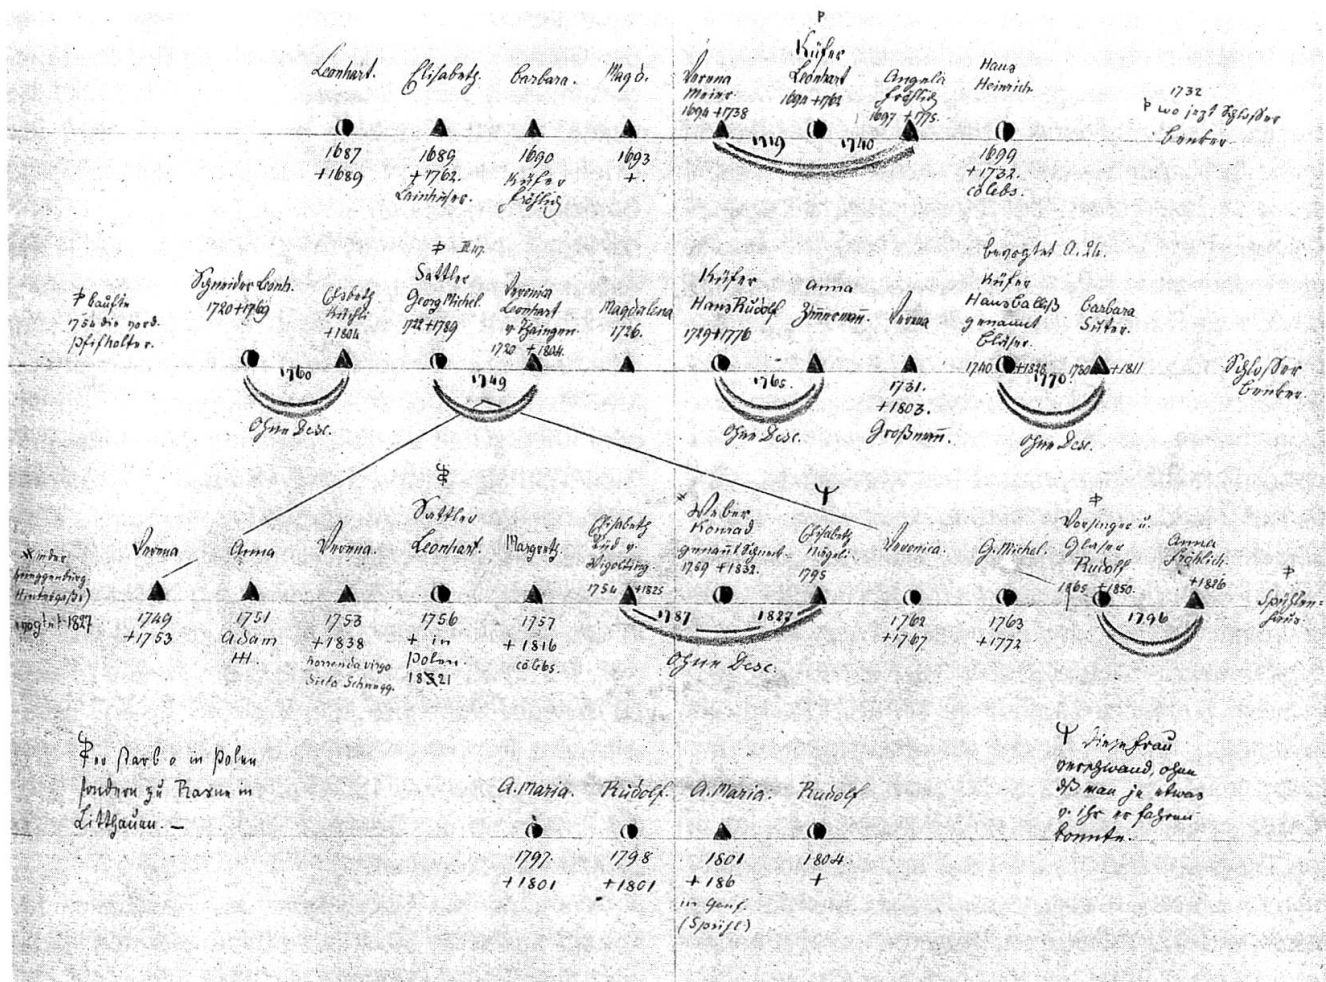 Leonhart.
1687
+1689
Elisabeth.
1689
+1762.
Barbara.
1690
Küfer
Fröhlich
Magd.
1693
+.
Verena
Meier.
1694 +1738
Küfer
Leonhart
1694 +1762
Angela
Fröhlich
1697 +1775.
1719
1740
Hans
Heinrich
1699
+1732.
cölebs.
1732
wo jezt Schlosser
Benker
kaufte
1754 die nord.
Schneider Leonh.
1720+1769
Elsbeth
+1804
1760
Ohne Desc.
Sattler
Georg Michel
1722+1789
Verena
Leonhart
1720 +1804.
1749
Magdalena
1726.
Küfer
Hans Rudolf
1729+1776
Anna
Zimmermañ.
1765.
Ohne Desc.
Verena
1731.
+1803.
Großmañ.
bevogtet A. 24.
Küfer
genannt
Glaser.
1740 +1828
Barbara
Suter.
1730 +1811
1770.
Ohne Desc.
Schlosser
Benker.
Hintergasse)
1827
Verena
1749
+1753
Anna
1751
Adam
Verena.
1753
+1838
horrenda virgo
Sattler
Leonhart.
1756
+ in
Polen
1821
Margreth
1757
+1816
cölebs.
Elisabeth
1754 +1825
Weber
Konrad
1759 +1832.
Elisabeth
Nägeli
1795
1787
1827
Ohne Desc.
Veronica.
1762
+1767
G. Michel.
1763
+1772
Vorsinger u.
Glaser
Rudolf
1765 +1850.
Anna
Fröhlich.
+1826
1796
er starb o in Polen
sondern zu Rasne in
Litthauen. –
A. Maria.
1797.
+1801
Rudolf.
1798
+1801
A. Maria.
1801
+186
in Genf
Rudolf
1804.
+
Diese Frau
verschwand, ohne
dß man je etwas
v. ihr erfahren
konnte.